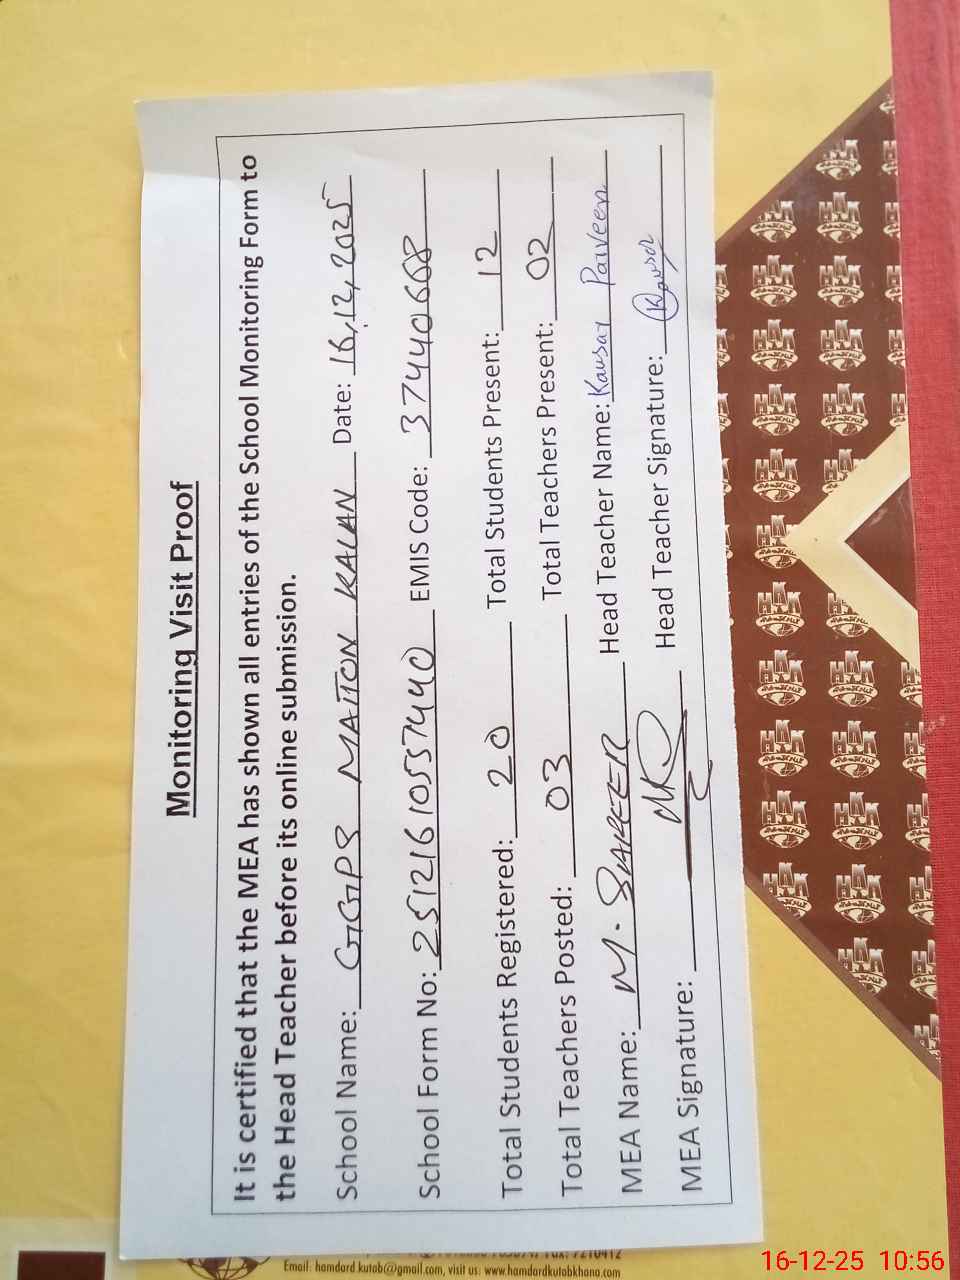 Monitoring Visit Proof
It is certified that the MEA has shown all entries of the School Monitoring Form to
the Head Teacher before its online submission.
School Name: GGPS MAITON KALAN Date: 16,12,2025
School Form No: 2512161055744O EMIS Code: 37440668
Total Students Registered: 20 Total Students Present: 12
Total Teachers Posted: 03 Total Teachers Present: 02
MEA Name: M. SHAKEER Head Teacher Name: Kausar Parveen
MEA Signature: Head Teacher Signature: Kausar
Email: hamdard.kutab@gmail.com, visit us: www.hamdardkutabkhana.com
16-12-25 10:56